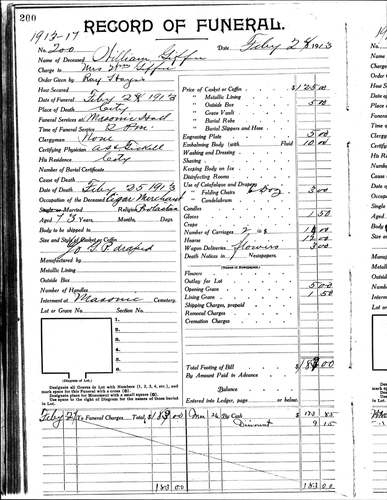 200
RECORD OF FUNERAL.
1913-17
No. 200 Date Feby 28 1913
Name of Deceased William Giffin
Charge to Mrs Wm Giffin
Order Given by Ray Hays
How Secured
Date of Funeral Feby 28 1913
Place of Death City
Funeral Services at Masonic Hall
Time of Funeral Service 2 P.M.
Clergyman None
Certifying Physician
His Residence City
Number of Burial Certificate
Cause of Death
Date of Death Feby 25 1913
Occupation of the Deceased Cigar Merchant
Single or Married Religion
Aged 73 Years, Months, Days.
Body to be shipped to
Size and Style of Casket or Coffin
Manufactured by
Metallic Lining
Outside Box
Number of Handles
Interment at Masonic Cemetery.
Lot or Grave No. Section No.
1.
2.
3.
4.
5.
6.
(Diagram of Lot.)
Designate all Graves in Lot with Numbers (1, 2, 3, 4, etc.), and
mark space for this Funeral with a cross (⊗).
Designate place for Monument with a small square (□).
Use the space to the right of Diagram for the names of those buried
in Lot.
Price of Casket or Coffin $ 125 00
" Metallic Lining
" Outside Box 5 00
" Grave Vault
" Burial Robe
" Burial Slippers and Hose
Engraving Plate 5 00
Embalming Body (with Fluid 10 00
Washing and Dressing
Shaving
Keeping Body on Ice
Disinfecting Rooms
Use of Catafalque and Drapery
" Folding Chairs 6 Doz 3 00
" Candelabrum
Candles
Gloves 1 50
Crape
Number of Carriages 2
Hearse 12 00
Wagon Deliveries flowers 3 00
Death Notices in Newspapers.
(Names of Newspapers)
Flowers
Outlay for Lot
Opening Grave 5 00
Lining Grave 1 50
Shipping Charges, prepaid
Removal Charges
Cremation Charges
Total Footing of Bill $ 183 00
By Amount Paid in Advance
Balance
Entered into Ledger, page or below.
Feby 28 To Funeral Charges Total, $ 183 00 Mar By Cash $ 173 85
Discount 9 15
183 00 183 00